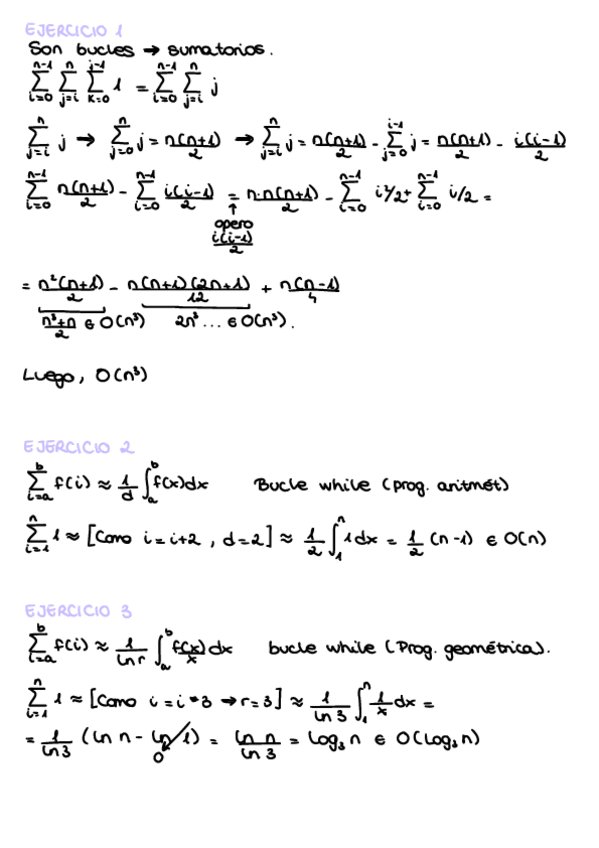 EJERCICIO 1
Son bucles → sumatorios.
∑_{i=0}^{n-1} ∑_{j=i}^{n} ∑_{k=0}^{j-1} 1 = ∑_{i=0}^{n-1} ∑_{j=i}^{n} j
∑_{j=i}^{n} j → ∑_{j=0}^{n} j = n(n+1)/2 → ∑_{j=i}^{n} j = n(n+1)/2 - ∑_{j=0}^{i-1} j = n(n+1)/2 - i(i-1)/2
∑_{i=0}^{n-1} n(n+1)/2 - ∑_{i=0}^{n-1} i(i-1)/2 = n·n(n+1)/2 - ∑_{i=0}^{n-1} i²/2 + ∑_{i=0}^{n-1} i/2 =
↑
opero
i(i-1)/2
= n²(n+1)/2 - n(n+1)(2n+1)/12 + n(n-1)/4
n³+n/2 ∈ O(n³) 2n³ ... ∈ O(n³).
Luego, O(n³)
EJERCICIO 2
∑_{i=a}^{b} f(i) ≈ 1/d ∫_a^b f(x)dx Bucle while (prog. aritmét)
∑_{i=1}^{n} 1 ≈ [Como i=i+2, d=2] ≈ 1/2 ∫_1^n 1dx = 1/2 (n-1) ∈ O(n)
EJERCICIO 3
∑_{i=a}^{b} f(i) ≈ 1/ln r ∫_a^b f(x)/x dx bucle while (Prog. geométrica).
∑_{i=1}^{n} 1 ≈ [Como i=i*3 → r=3] ≈ 1/ln 3 ∫_1^n 1/x dx =
= 1/ln 3 (ln n - ln 1) = ln n/ln 3 = log₃ n ∈ O(log₃ n)
0